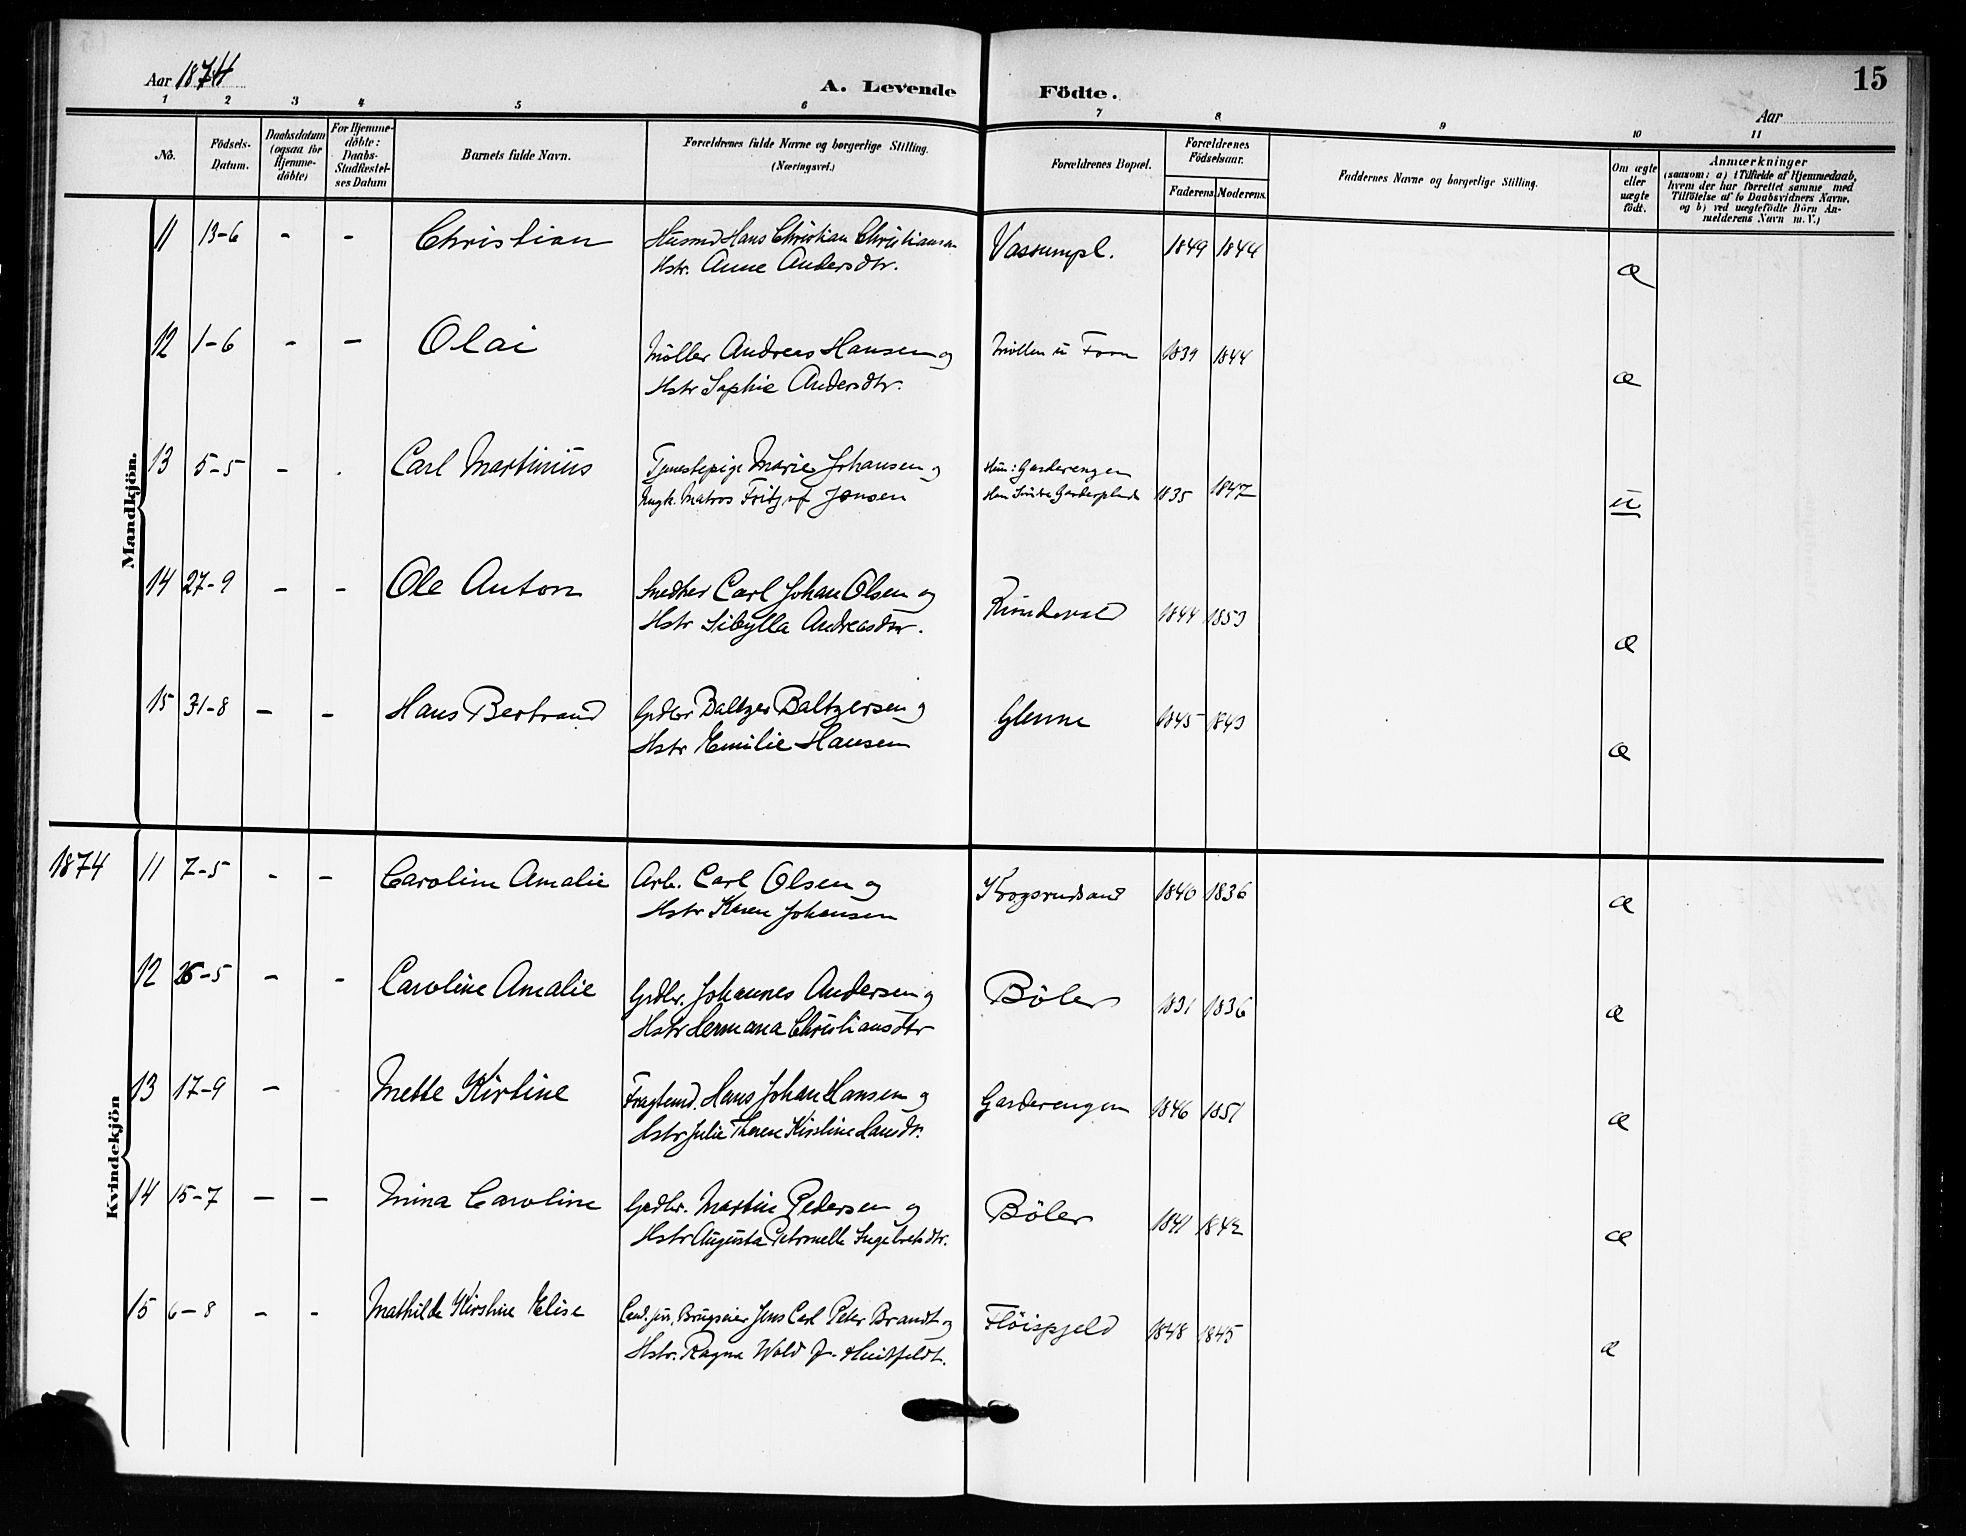 Aar 1874
A. Levende Födte.
15
Aar
1 2 3 4 5 6 7 8 9 10 11
No.
Födsels-Datum.
Daabsdatum (ogsaa for Hjemme-döbte)
For Hjemme-döbte: Daabs-Stadfæstel-ses Datum
Barnets fulde Navn.
Forældrenes fulde Navne og borgerlige Stilling. (Næringsvei.)
Forældrenes Bopæl.
Forældrenes Födselsaar.
Faderens. Moderens.
Faddernes Navne og borgerlige Stilling.
Om ægte eller uægte födt.
Anmærkninger
(saasom: a) i Tilfælde af Hjemmedaab,
hvem der har forrettet samme med
Tilföielse af to Daabsvidners Navne,
og b) ved uægtefödte Börn An-
melderens Navn m. V.)
Mandkjön.
11 13-6 - - Christian Husmd Hans Christian Christiansen Vassumpl. 1849 1844 æ
Hstr. Anne Andersdtr.
12 1-6 - - Olai Møller Andreas Hansen og Møllen u Foon 1839 1844 æ
Hstr Sophie Andersdtr.
13 5-5 - . Carl Martinius Tjenestepige Marie Johansen og Hun: Garderengen
Ungk. Matros Fritjof Jensen Han Søndre Garderplads 1835 1847 u
14 27-9 - - Ole Anton Snedker Carl Johan Olsen og
Hstr Sibylla Andreasdtr. 1844 1853 æ
15 31-8 - - Hans Bertrand Grdbr Baltzer Baltzersen og Glenne 1845 1849 æ
Hstr Emilie Hansen
Kvindekjön
1874 11 7-5 - - Caroline Amalie Arb. Carl Olsen og Krogsrudsand 1840 1836 æ
Hstr Karen Johansen
12 26-5 - - Caroline Amalie Grdbr. Johannes Andersen og Böler 1831 1836 æ
Hstr Hermana Christiansdtr
13 17-9 - Mette Kirstine Fragtemd. Hans Johan Hansen og Garderengen 1846 1851 æ
Hstr Julie Therese Kirstine Larsdtr.
14 15-7 - - Mina Caroline Grdbr. Martin Pedersen og Böler 1841 1842 æ
Hstr Augusta Petronelle Ingebretsdtr.
15 6-8 - - Mathilde Kirstine Elise Cand. jur. Brugseier Jens Carl Peter Brandt og Flöispjeld 1848 1845 æ
Hstr. Ragna Wold f. Huitfeldt.